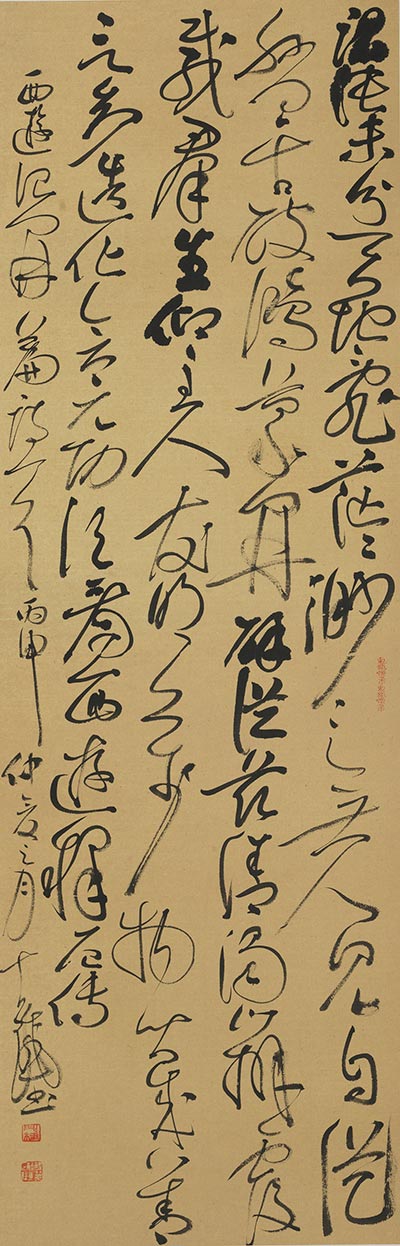 混沌未分天地亂茫茫渺渺無人見自從
盤古破鴻蒙開闢從茲清濁辨覆
載群生仰至仁發明萬物皆成善
欲知造化會元功須看西遊釋厄傳
西遊記開篇詩一首 丙申仲夏之月 書